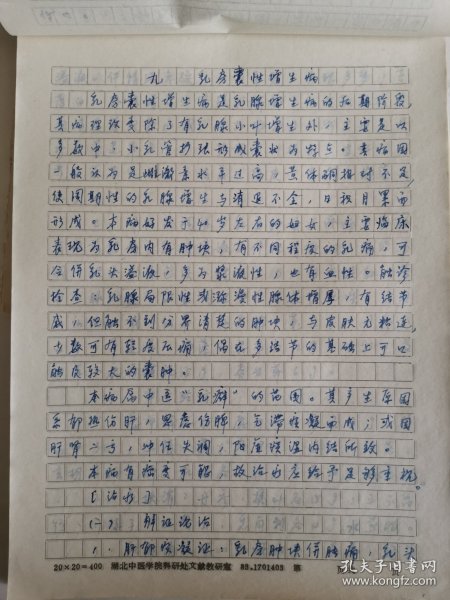 九 乳房囊性增生病
乳房囊性增生病是乳腺增生病的后期阶段,
其病理改变除了有乳腺小叶增生外,主要是以
多数中、小乳管扩张形成囊状为特点。其病因
一般认为是雌激素水平过高,黄体酮相对不足
使周期性的乳腺增生与消退不全,日积月累而
形成。本病好发于40岁左右的妇女,主要临床
表现为乳房内有肿块,有不同程度的乳痛,可
合併乳头溢液,多为浆液性,也有血性。触诊
检查:乳腺局限性或弥漫性腺体增厚,有结节
感,但触不到分界清楚的肿块,与皮肤无粘连,
少数可有轻度压痛,偶在多结节的基础上可以
触及较大的囊肿。
本病属中医“乳癖”的范围。其产生原因
系郁热伤肝,思虑伤脾,气滞痰凝而成;或因
肝肾亏,冲任失调,阳虚痰湿内结所致。
本病有癌变可能,故治疗应给予足够重视。
[治疗]
(一) 辨证论治
1. 肝郁痰凝证:乳房肿块併胀痛,乳头
20×20=400 湖北中医学院科研处文献教研室 88.1701403 第
孔夫子旧书网